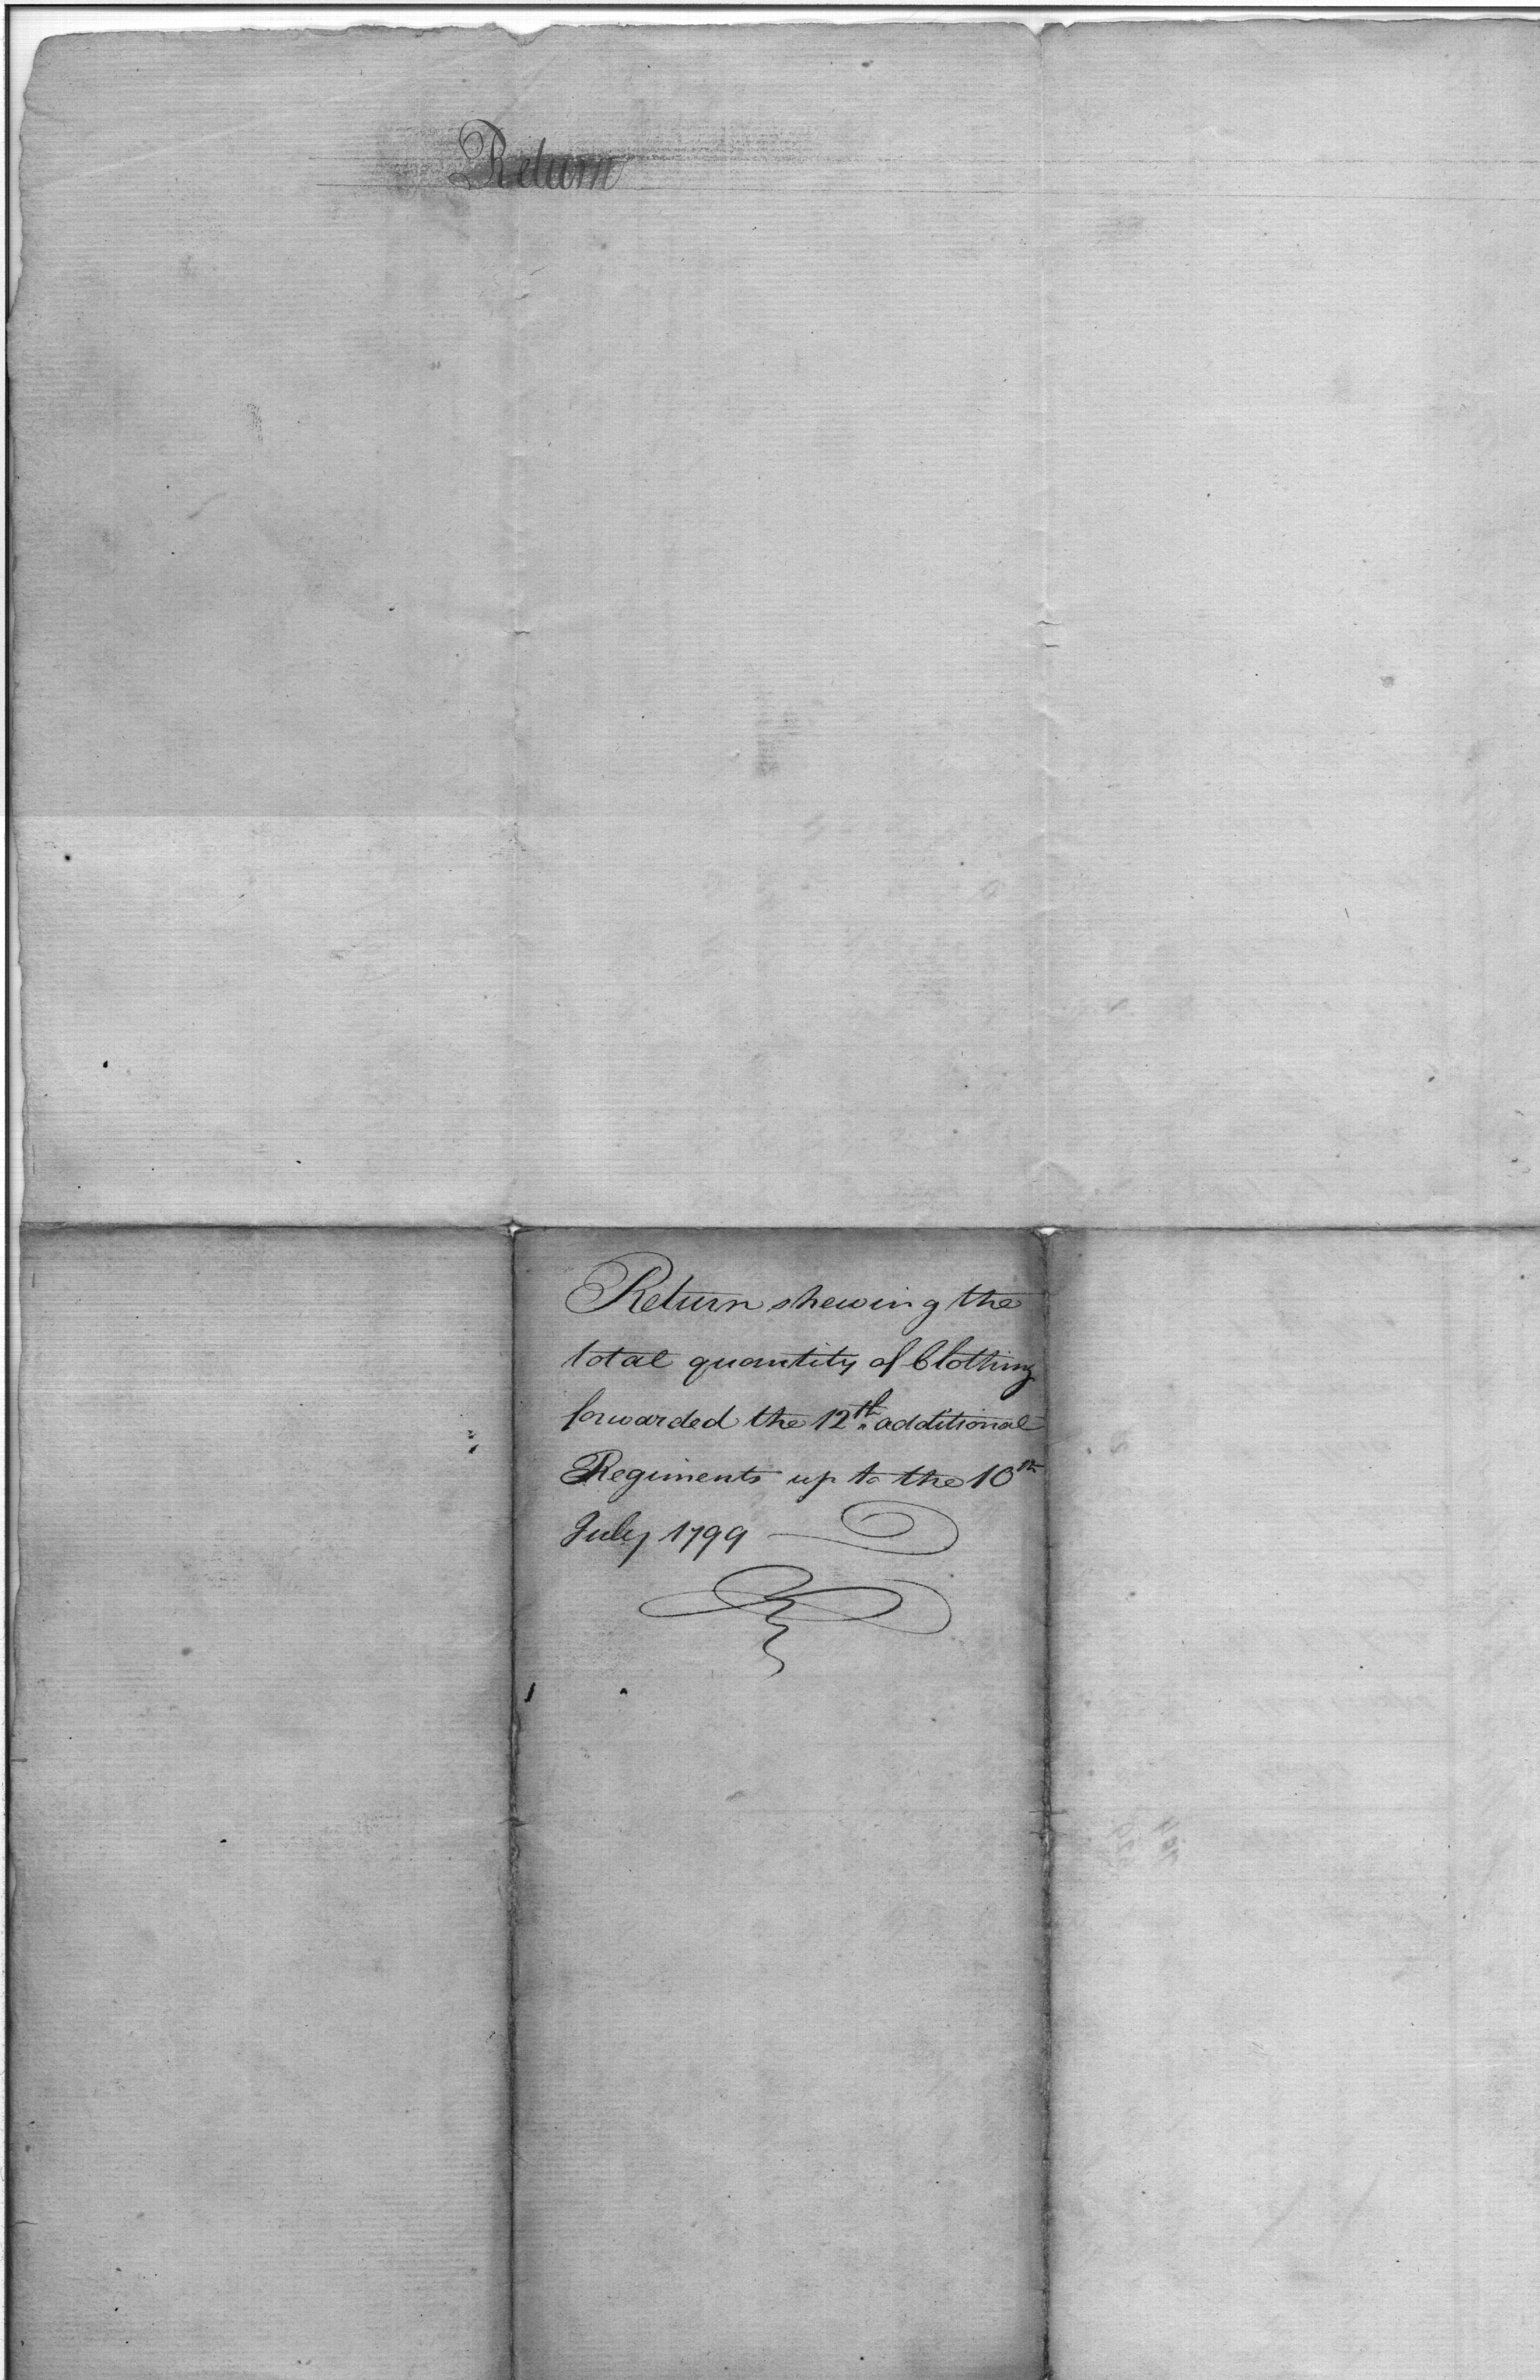 Return
Return shewing the
total quantity of Clothing
forwarded the 12th additional
Regiments up to the 10th
July 1799